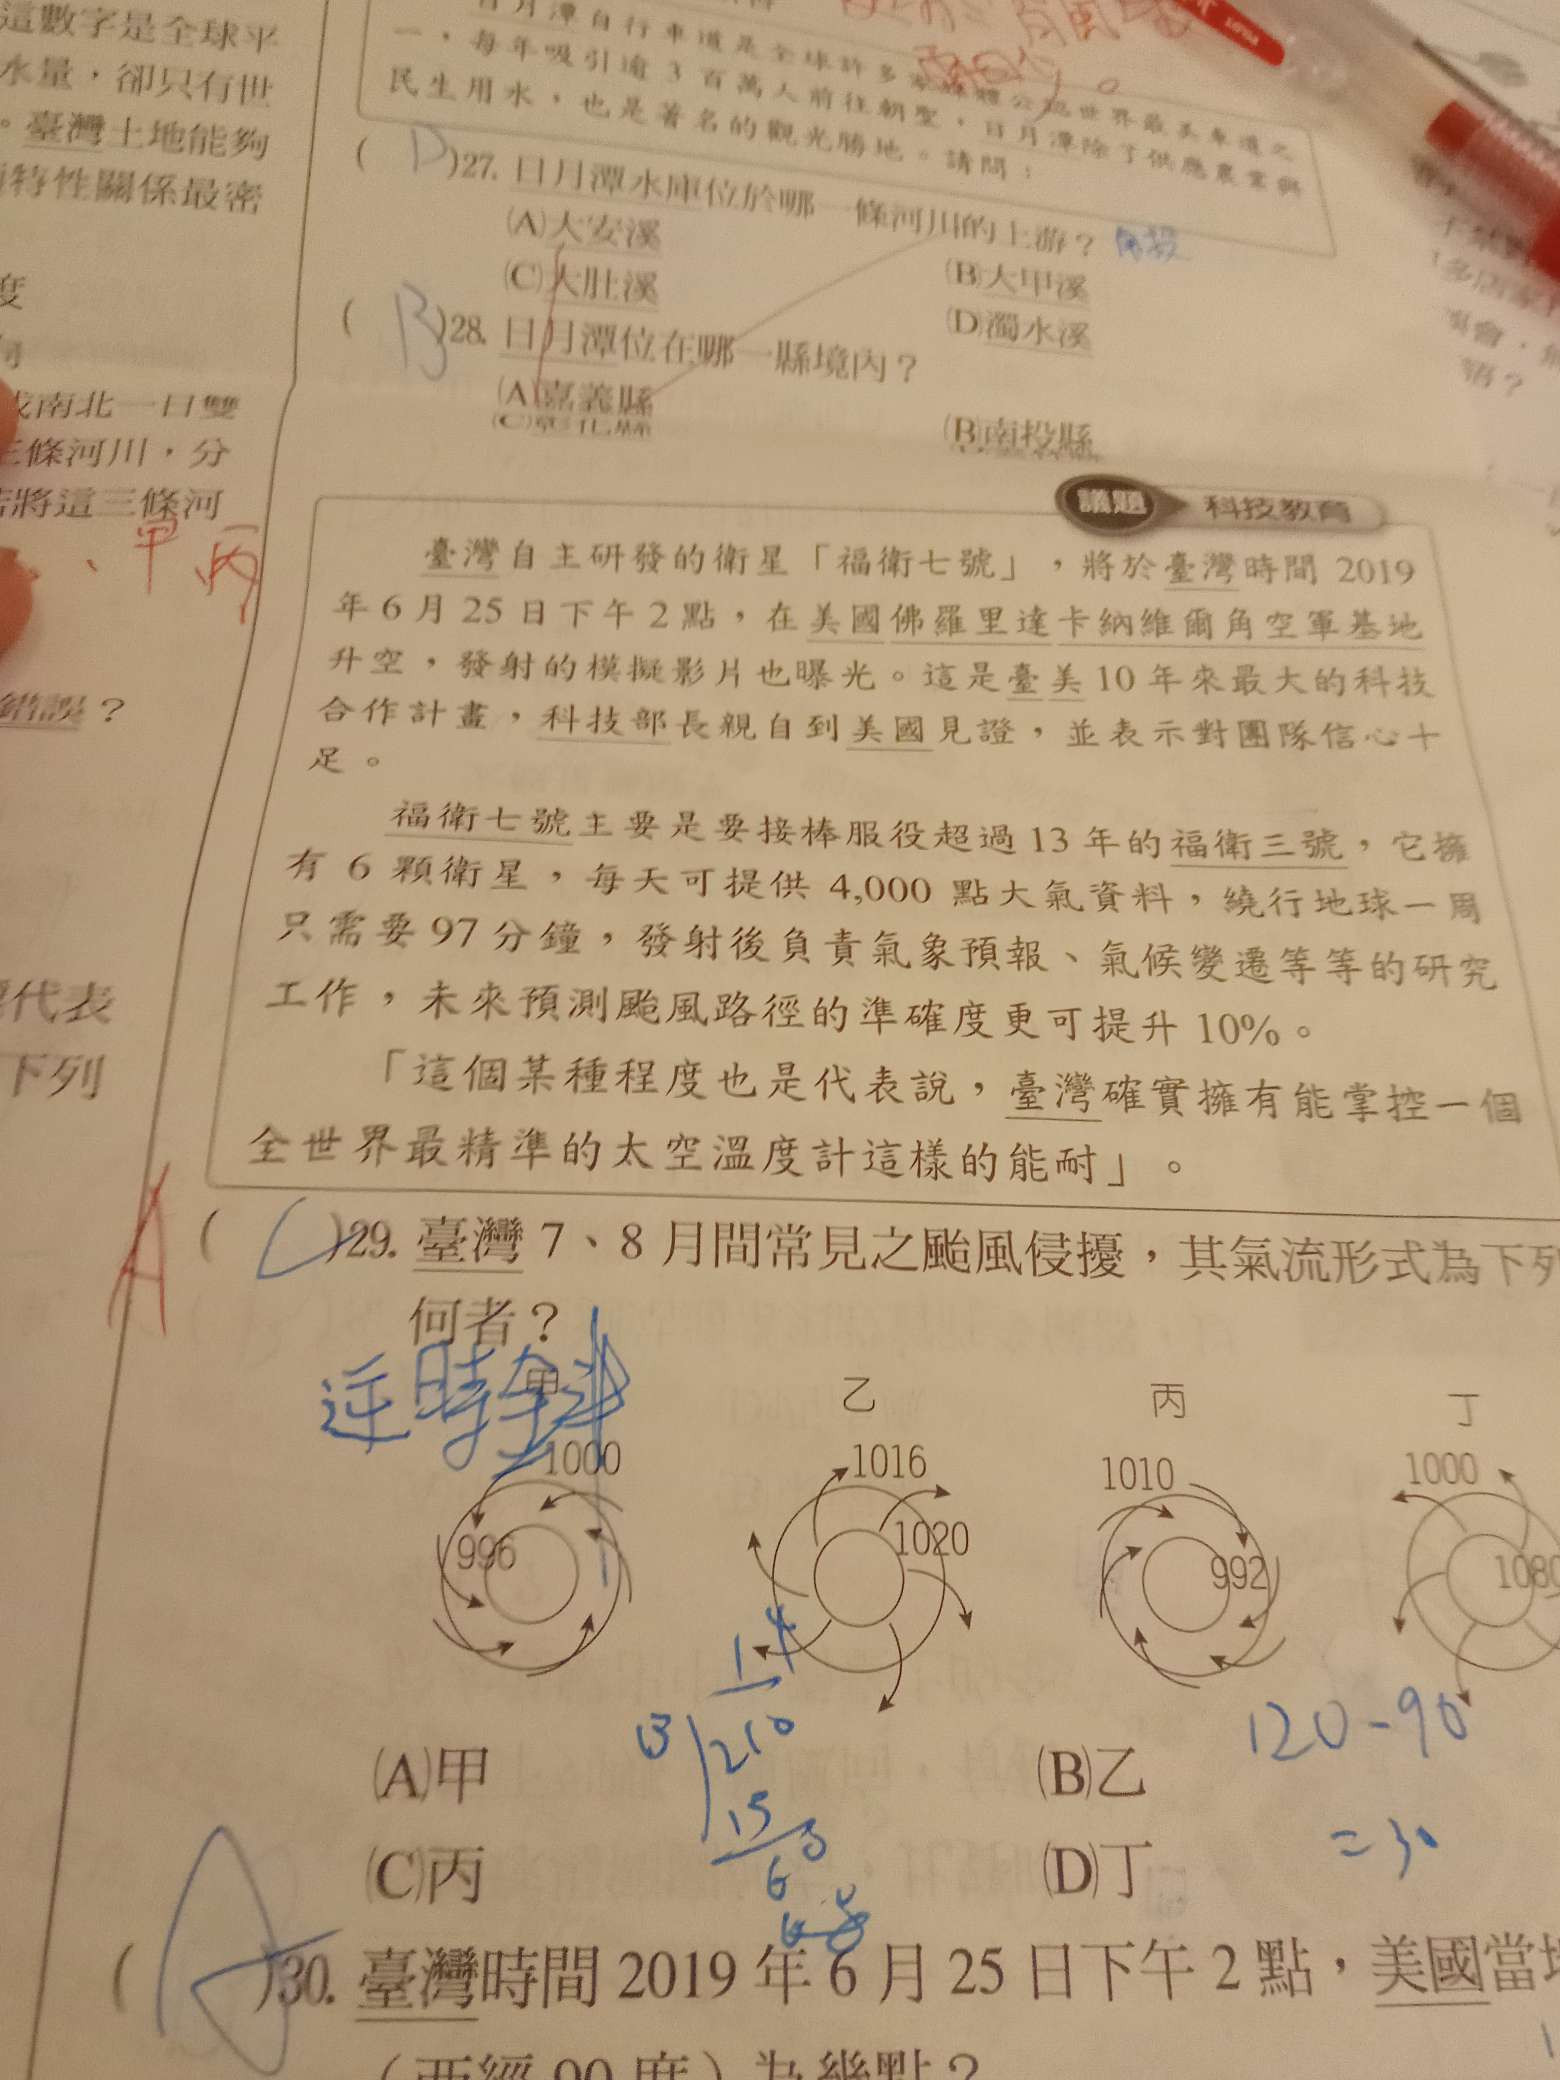 這數字是全球平
水量，卻只有世
。臺灣土地能夠
特性關係最密
度
成南北一日雙
三條河川，分
將這三條河
、甲丙
錯誤？
代表
下列
日月潭自行車道是全球許多
一，每年吸引逾3百萬人前往朝聖，日月潭除了供應農業與
民生用水，也是著名的觀光勝地。請問：
( D )27. 日月潭水庫位於哪一條河川的上游？ 南投
(A)大安溪
(B)大甲溪
(C)大肚溪
(D)濁水溪
( B )28. 日月潭位在哪一縣境內？
(A)嘉義縣
(B)南投縣
(C)彰化縣
議題 科技教育
臺灣自主研發的衛星「福衛七號」，將於臺灣時間 2019
年6月25日下午2點，在美國佛羅里達卡納維爾角空軍基地
升空，發射的模擬影片也曝光。這是臺美10年來最大的科技
合作計畫，科技部長親自到美國見證，並表示對團隊信心十
足。
福衛七號主要是要接棒服役超過13年的福衛三號，它擁
有 6 顆衛星，每天可提供 4,000 點大氣資料，繞行地球一周
只需要97分鐘，發射後負責氣象預報、氣候變遷等等的研究
工作，未來預測颱風路徑的準確度更可提升10%。
「這個某種程度也是代表說，臺灣確實擁有能掌控一個
全世界最精準的太空溫度計這樣的能耐」。
A
( C )29. 臺灣 7、8 月間常見之颱風侵擾，其氣流形式為下列
何者？
逆時針
甲 乙 丙 丁
1000 1016 1010 1000
996 1020 992 1080
14
15 210
15
6
120-90
=30
(A)甲
(B)乙
(C)丙
(D)丁
( A )30. 臺灣時間 2019 年 6 月 25 日下午 2 點，美國當地
（西經 90 度）為幾點？